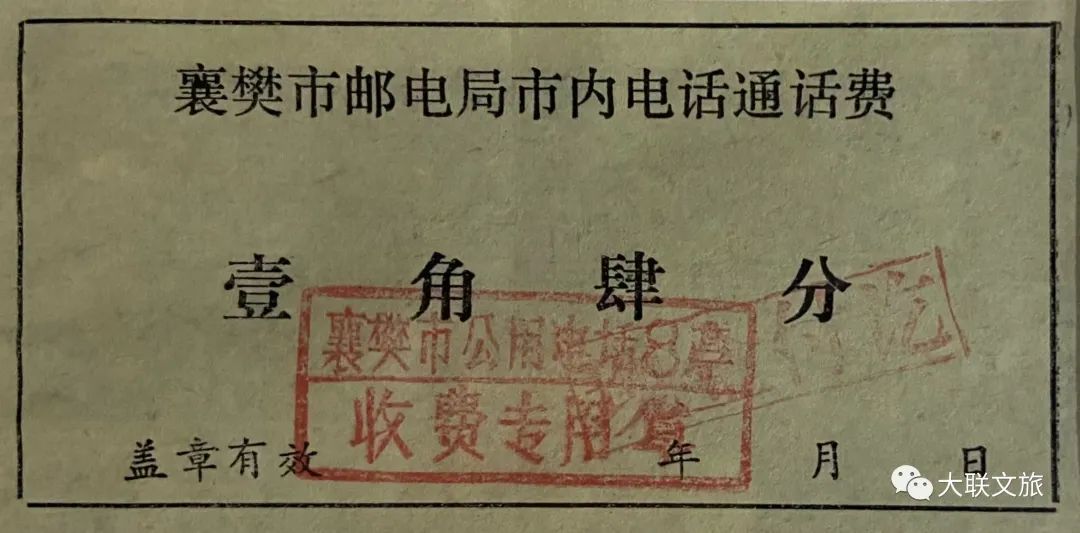 襄樊市邮电局市内电话通话费
壹角肆分
襄樊市公用电话8亭
收费专用章
盖章有效 年 月 日
大联文旅